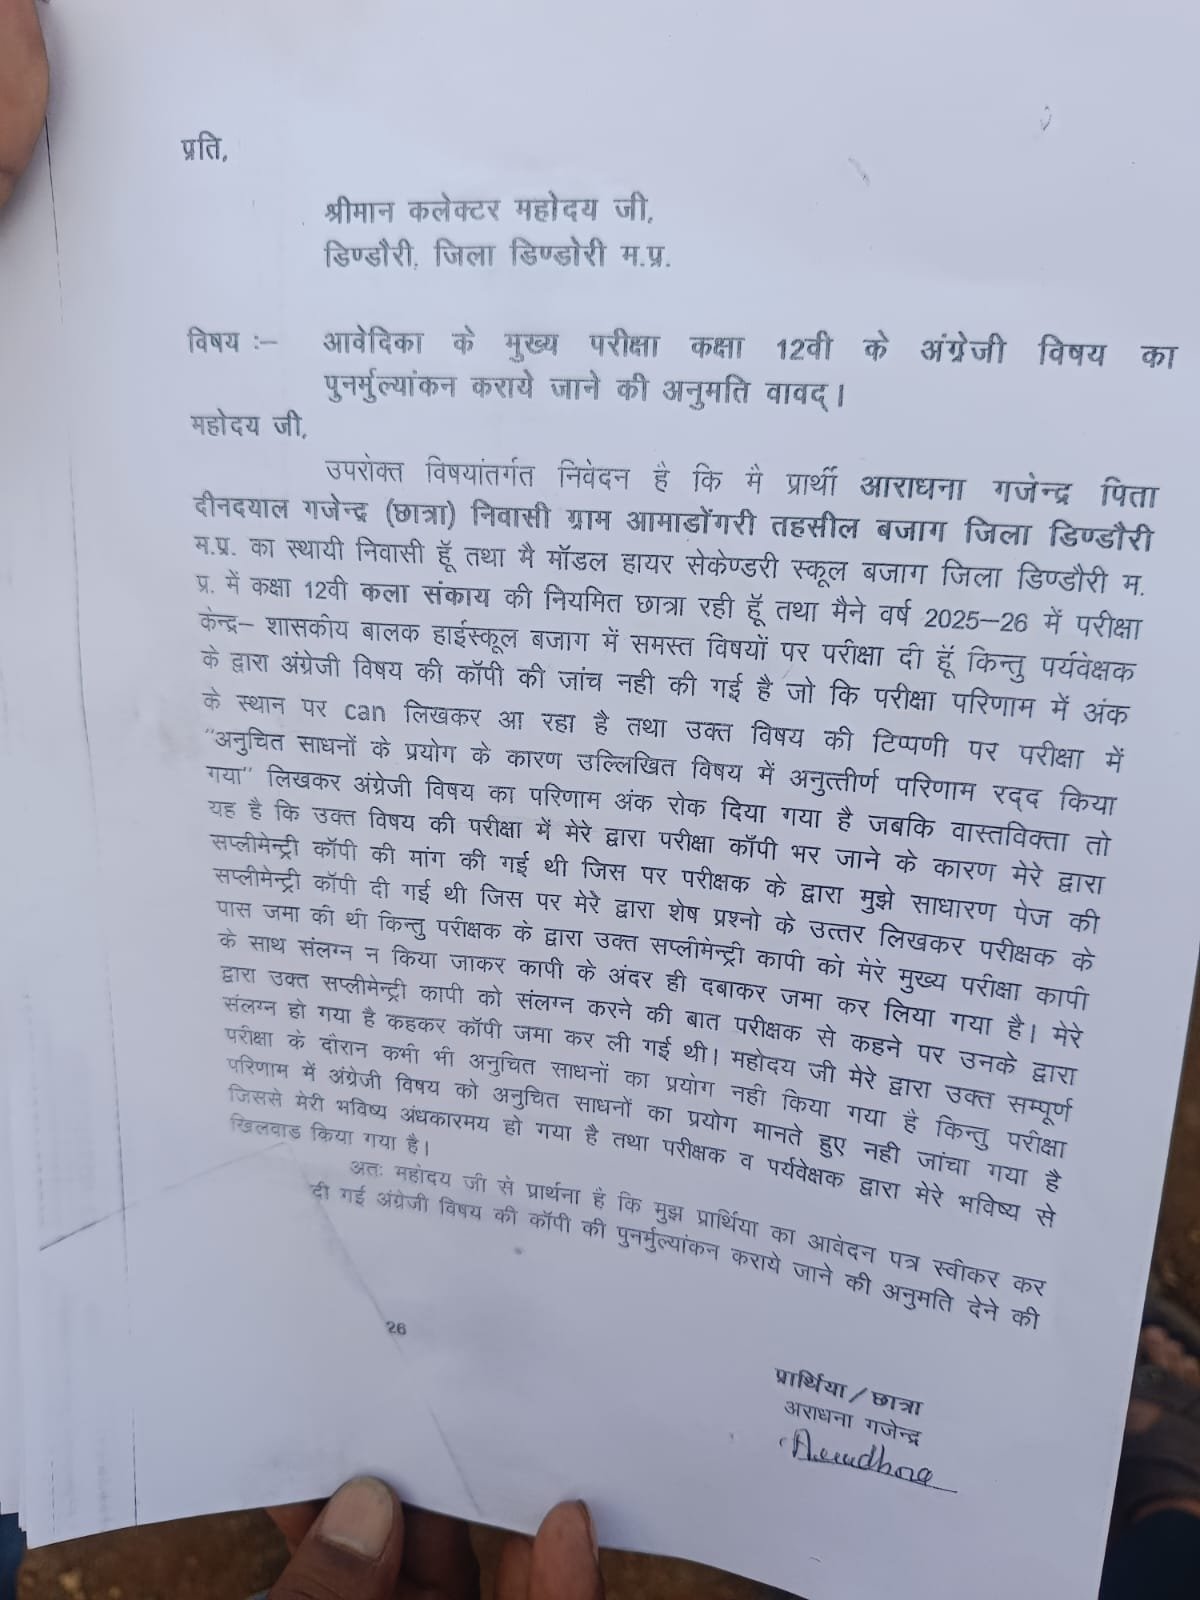 प्रति,
श्रीमान कलेक्टर महोदय जी,
डिण्डौरी, जिला डिण्डोरी म.प्र.
विषय :– आवेदिका के मुख्य परीक्षा कक्षा 12वी के अंग्रेजी विषय का
पुनर्मुल्यांकन कराये जाने की अनुमति वावद्।
महोदय जी,
उपरोक्त विषयांतर्गत निवेदन है कि मै प्रार्थी आराधना गजेन्द्र पिता
दीनदयाल गजेन्द्र (छात्रा) निवासी ग्राम आमाडोंगरी तहसील बजाग जिला डिण्डौरी
म.प्र. का स्थायी निवासी हूँ तथा मै मॉडल हायर सेकेण्डरी स्कूल बजाग जिला डिण्डौरी म.
प्र. में कक्षा 12वी कला संकाय की नियमित छात्रा रही हूँ तथा मैने वर्ष 2025–26 में परीक्षा
केन्द्र– शासकीय बालक हाईस्कूल बजाग में समस्त विषयों पर परीक्षा दी हूँ किन्तु पर्यवेक्षक
के द्वारा अंग्रेजी विषय की कॉपी की जांच नही की गई है जो कि परीक्षा परिणाम में अंक
के स्थान पर can लिखकर आ रहा है तथा उक्त विषय की टिप्पणी पर परीक्षा में
"अनुचित साधनों के प्रयोग के कारण उल्लिखित विषय में अनुत्तीर्ण परिणाम रद्द किया
गया" लिखकर अंग्रेजी विषय का परिणाम अंक रोक दिया गया है जबकि वास्तविक्ता तो
यह है कि उक्त विषय की परीक्षा में मेरे द्वारा परीक्षा कॉपी भर जाने के कारण मेरे द्वारा
सप्लीमेन्ट्री कॉपी की मांग की गई थी जिस पर परीक्षक के द्वारा मुझे साधारण पेज की
सप्लीमेन्ट्री कॉपी दी गई थी जिस पर मेरे द्वारा शेष प्रश्नो के उत्तर लिखकर परीक्षक के
पास जमा की थी किन्तु परीक्षक के द्वारा उक्त सप्लीमेन्ट्री कापी को मेरे मुख्य परीक्षा कापी
के साथ संलग्न न किया जाकर कापी के अंदर ही दबाकर जमा कर लिया गया है। मेरे
द्वारा उक्त सप्लीमेन्ट्री कापी को संलग्न करने की बात परीक्षक से कहने पर उनके द्वारा
संलग्न हो गया है कहकर कॉपी जमा कर ली गई थी। महोदय जी मेरे द्वारा उक्त सम्पूर्ण
परीक्षा के दौरान कभी भी अनुचित साधनों का प्रयोग नही किया गया है किन्तु परीक्षा
परिणाम में अंग्रेजी विषय को अनुचित साधनों का प्रयोग मानते हुए नही जांचा गया है
जिससे मेरी भविष्य अंधकारमय हो गया है तथा परीक्षक व पर्यवेक्षक द्वारा मेरे भविष्य से
खिलवाड किया गया है।
अतः महोदय जी से प्रार्थना है कि मुझ प्रार्थिया का आवेदन पत्र स्वीकर कर
दी गई अंग्रेजी विषय की कॉपी की पुनर्मुल्यांकन कराये जाने की अनुमति देने की
26
प्रार्थिया/छात्रा
अराधना गजेन्द्र